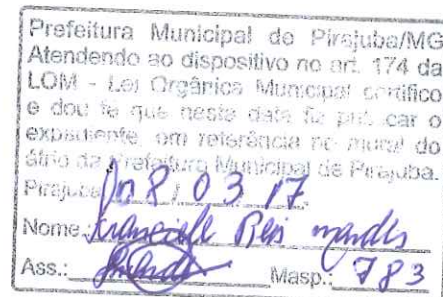 Prefeitura Municipal de Pirajuba/MG
Atendendo ao dispositivo no art. 174 da
LOM - Lei Orgânica Municipal certifico
e dou fé que nesta data fiz publicar o
expediente em referência no mural do
átrio da Prefeitura Municipal de Pirajuba.
Pirajuba 08 / 03 / 17.
Nome.: Reis
Ass.: Masp.: 783